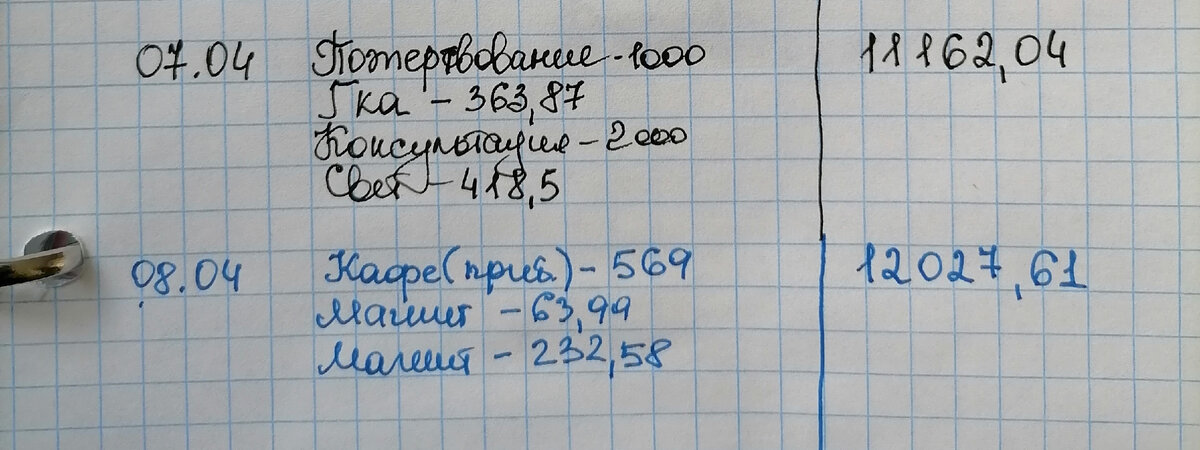 07.04 Пожертвование - 1000 11162,04
Гка - 363,87
Консультация - 2000
Свет - 418,5
08.04 Кафе (приб.) - 569 12027,61
Магнит - 63,99
Магнит - 232,58